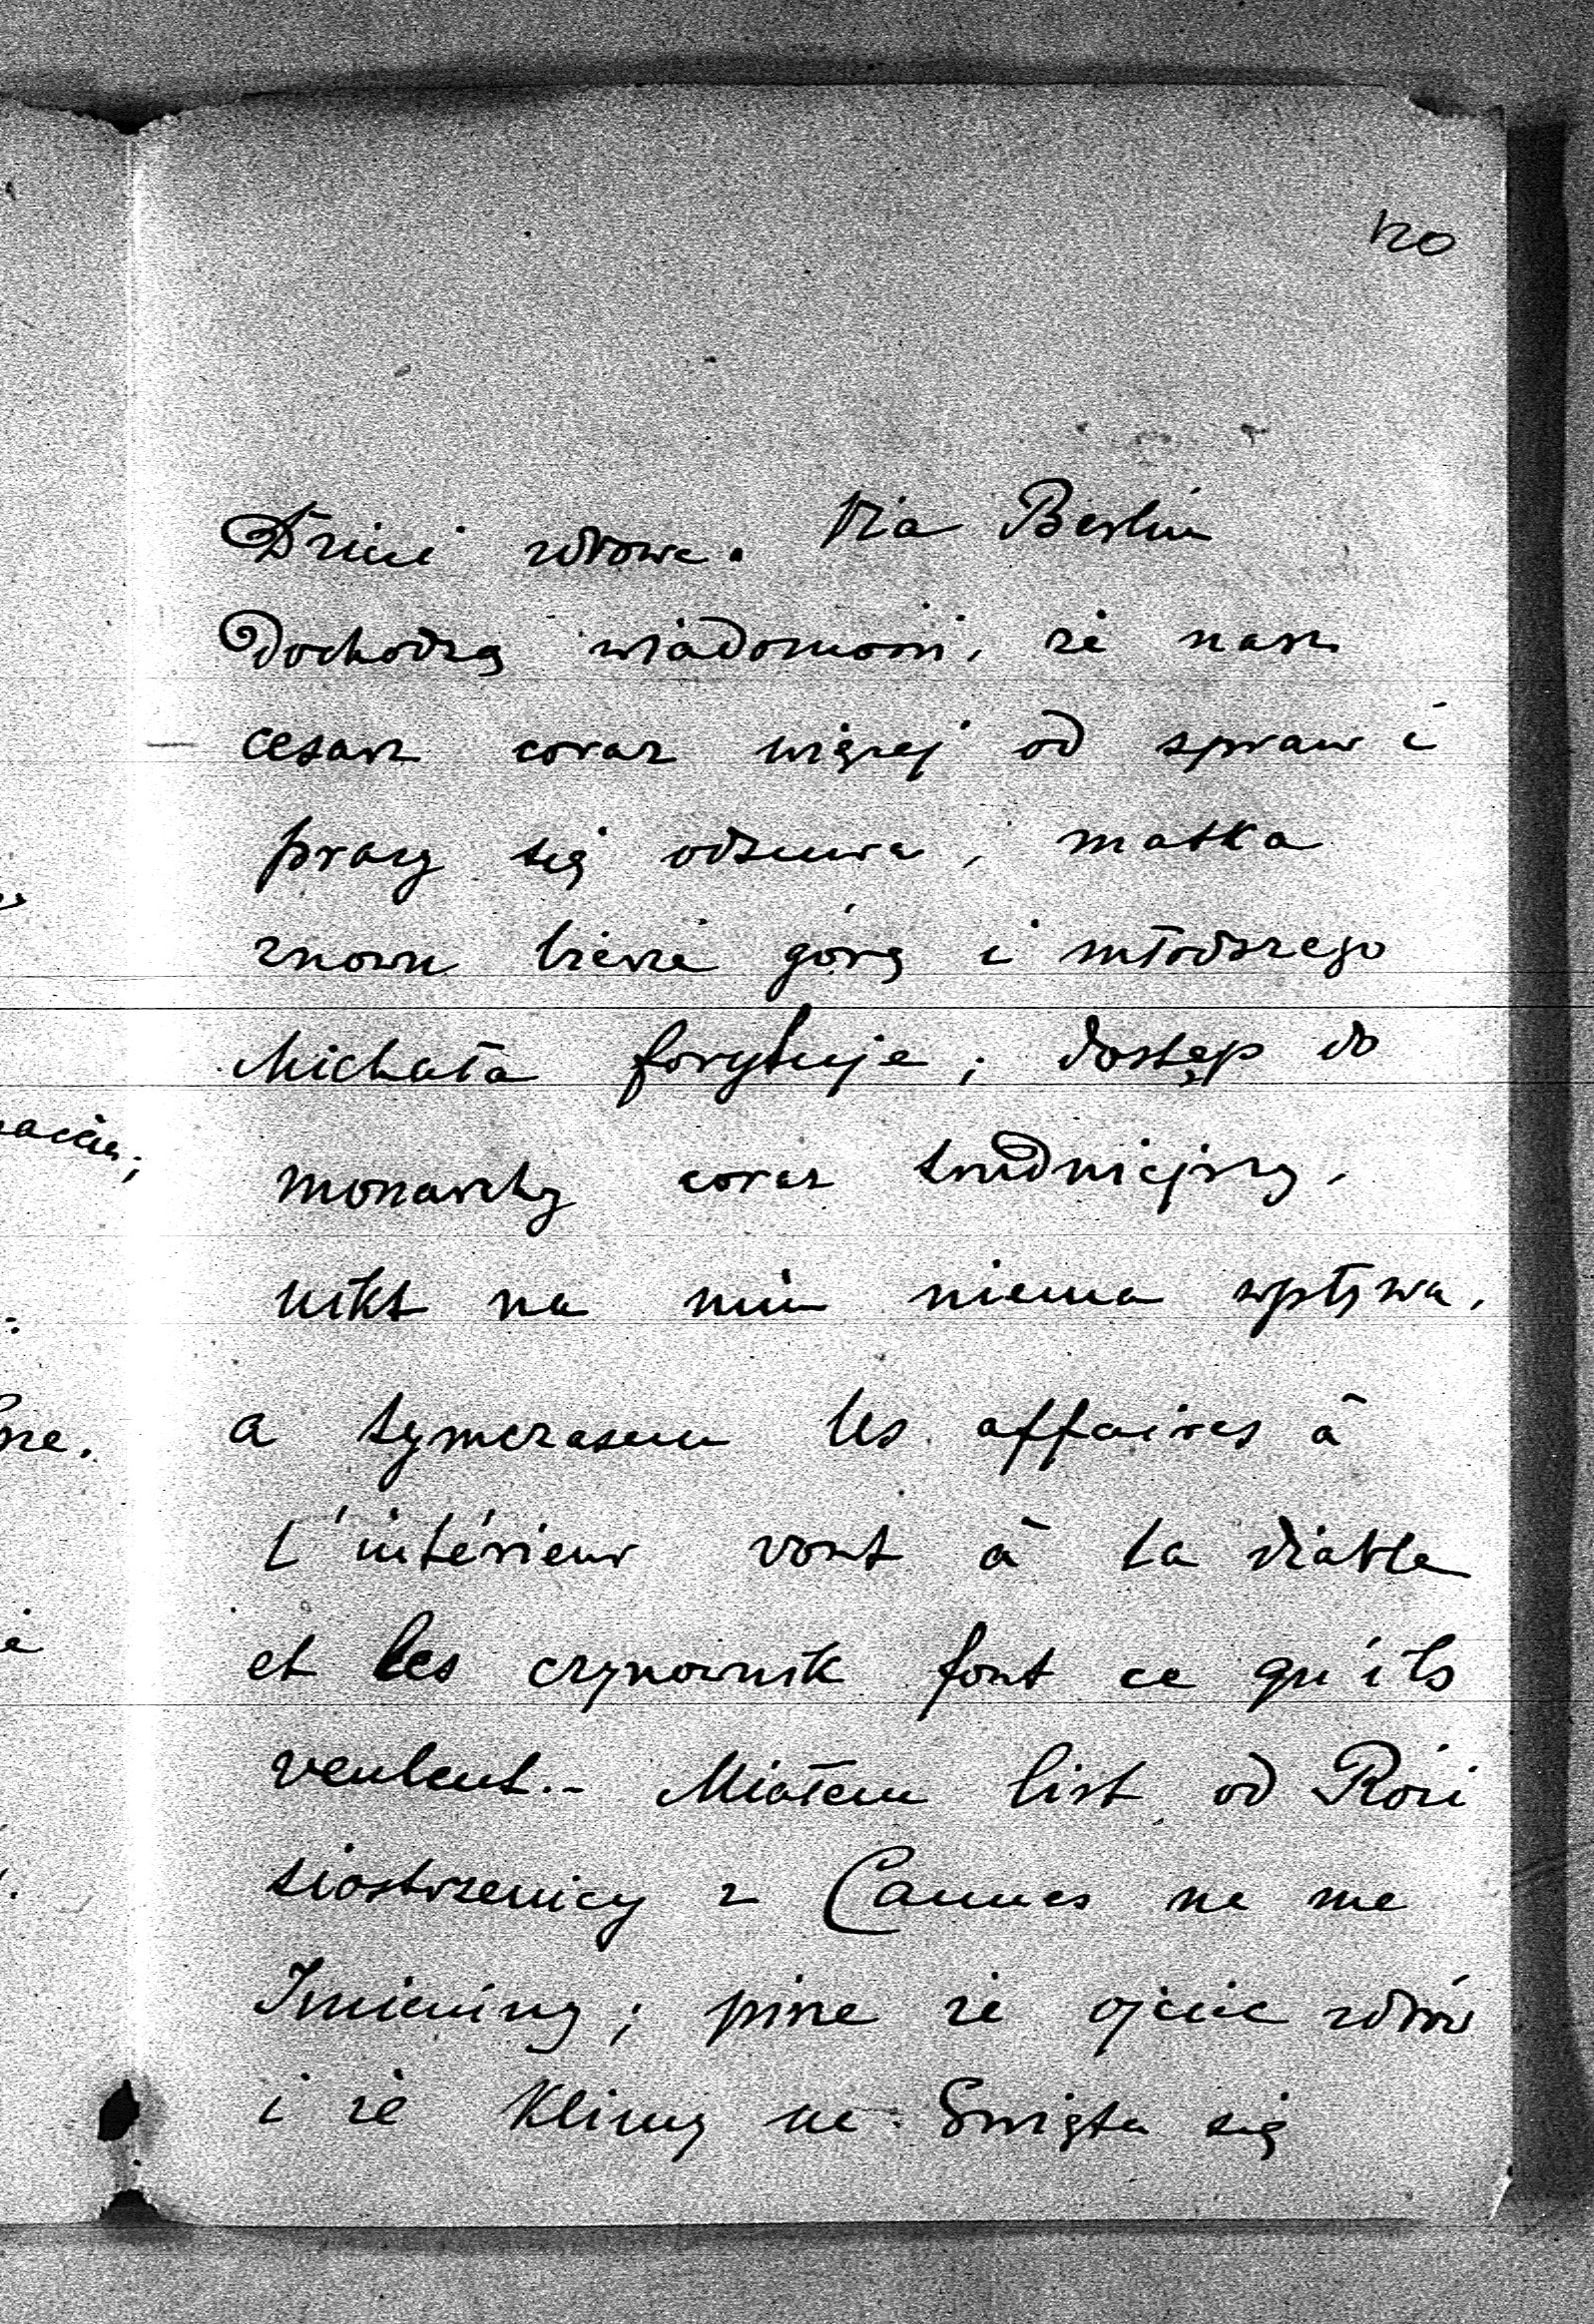 120
Dzieci zdrowe. Via Berlin
Dochodzą wiadomości, że nasz
cesarz coraz więcej od spraw i
pracy się odsuwa, matka
znowu bierze górę i młodszego
Michała forytuje; dostęp do
monarchy coraz trudniejszy,
nikt na nim niema wpływu,
a tymczasem les affaires à
l'intérieur vont à la diable
et les czynownik font ce qu'ils
veulent.- Miałem list od Rózi
siostrzenicy z Cannes na me
Imieniny; pisze że ojciec zdrów
i że Klimy na Święta się